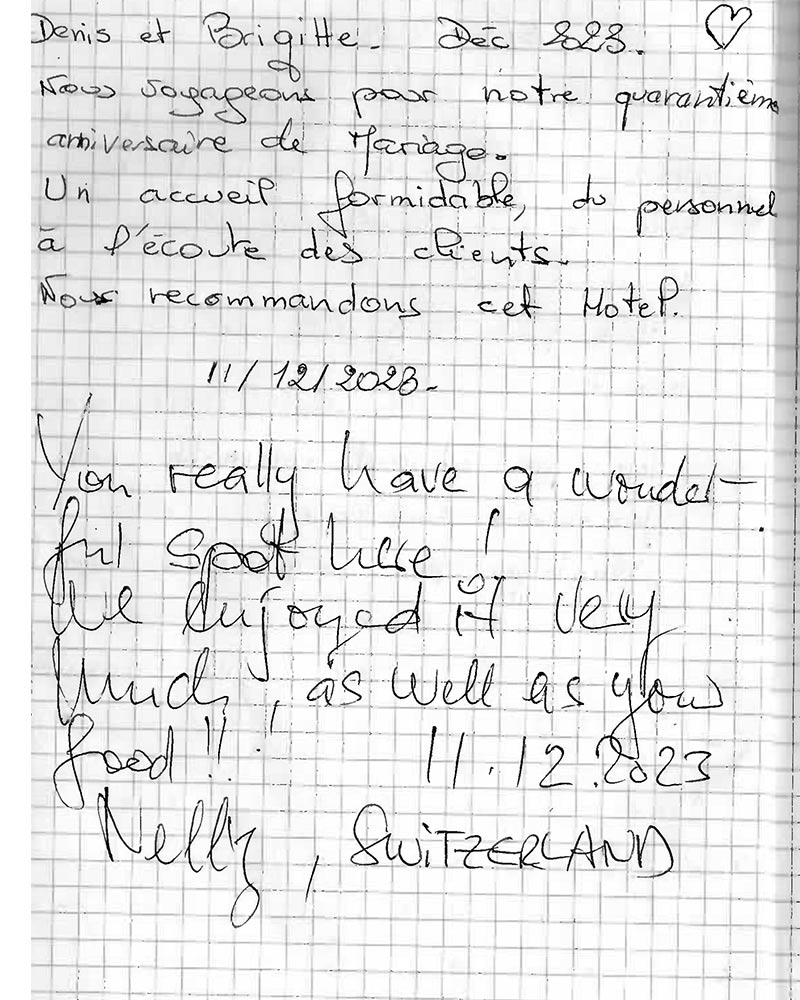 Denis et Brigitte. Déc 2023. ♡
Nous voyageons pour notre quarantième
anniversaire de Mariage.
Un accueil formidable, du personnel
à l'écoute des clients.
Nous recommandons cet Hotel.
11/12/2023.
You really have a wonder-
ful spot here!
We enjoyed it very
much, as well as your
food!! 11.12.2023
Nelly, SWiTZERLAND